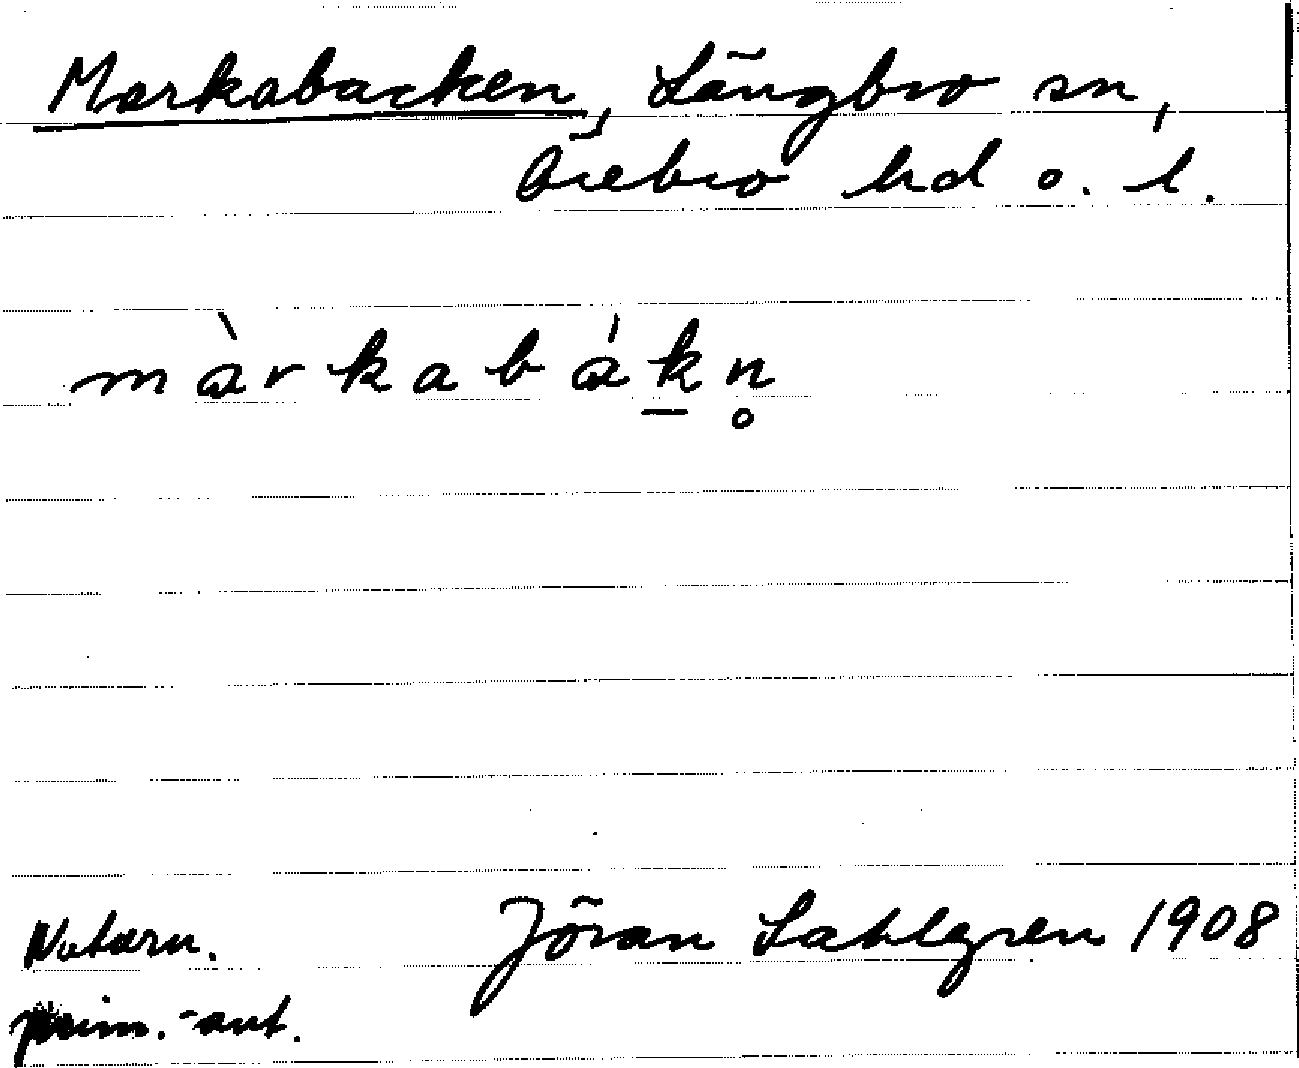 Markabacken, Längbro sn,
Örebro hd o. l.
màrkabákn̥
Naturn.
prim.-ant.
Jöran Sahlgren 1908